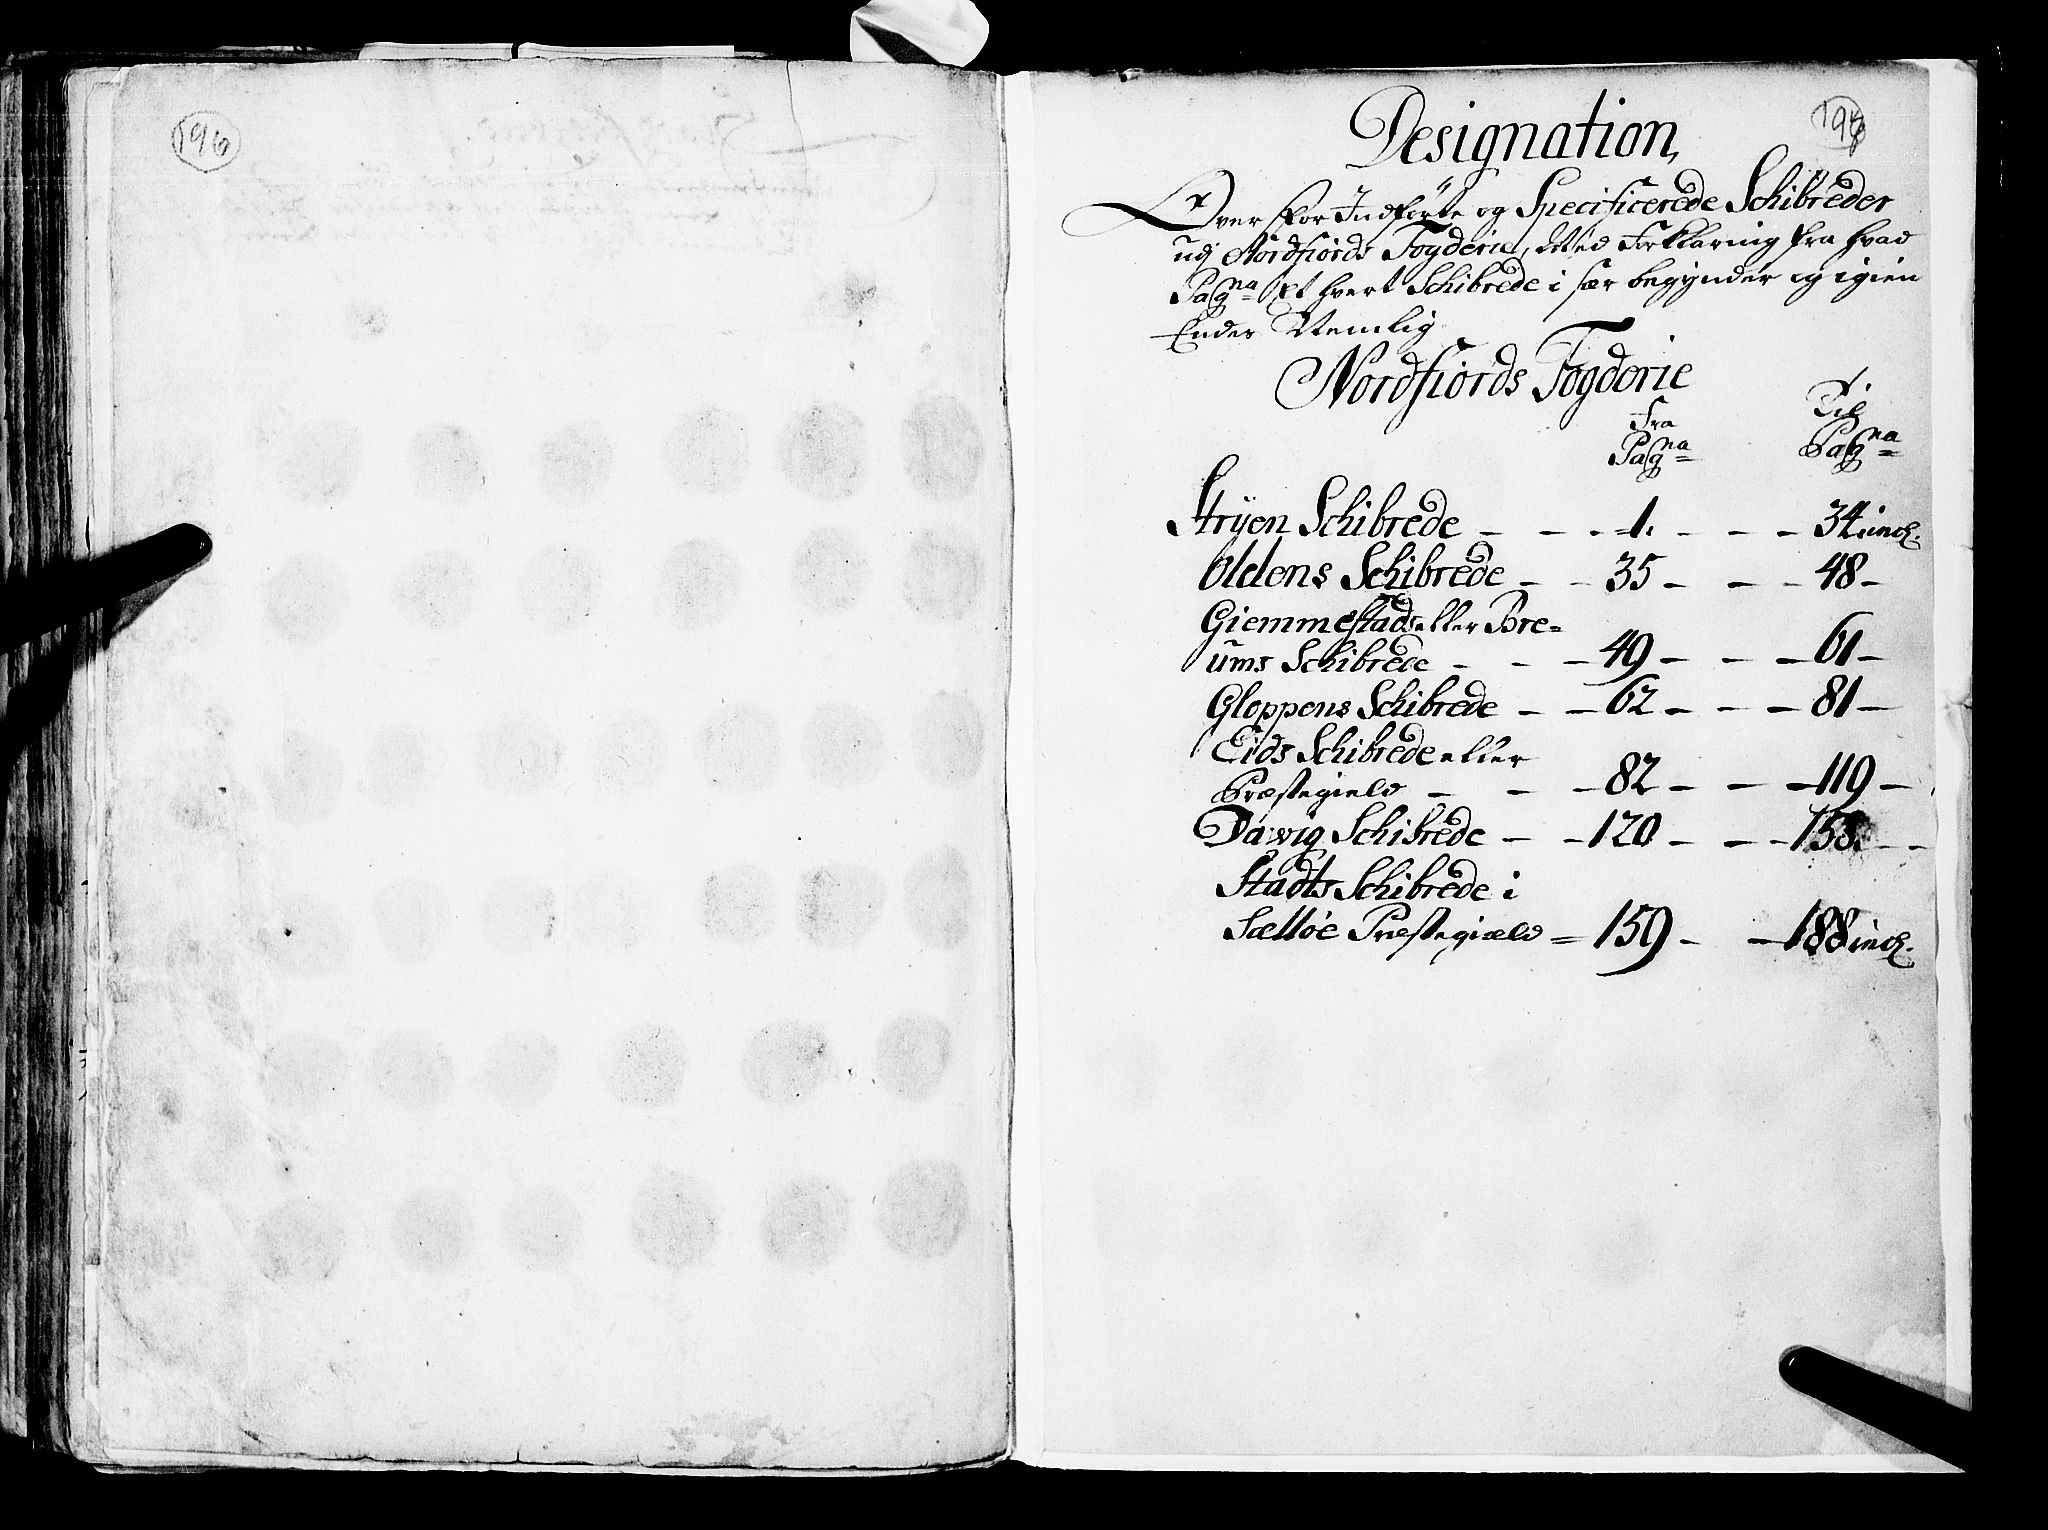 196
Designation,
197
Over for Indførte og Specificerede Schibreder
udj Nordfiords Fogderie, Forklaring fra hvad
Pag:na Et hvert Schibrede i sær begynder og igien
Ender Nemlig
Nordfiords Fogderie
Fra Til
Pag:na Pag:na
Stryen Schibrede - - - 1. - - - 34 incl.
Oldens Schibrede - - 35 - - - 48 -
Giemmestads eller Bre=
ums Schibrede - - - 49 - - - 61 -
Gloppens Schibrede - - 62 - - - 81 -
Eids Schibrede eller
Præstegield - - - 82 - - - 119 -
Dawig Schibrede - - 120 - - - 158. - -
Stadts Schibrede i
Sælløe Præstegiæld = 159 - - 188 incl.